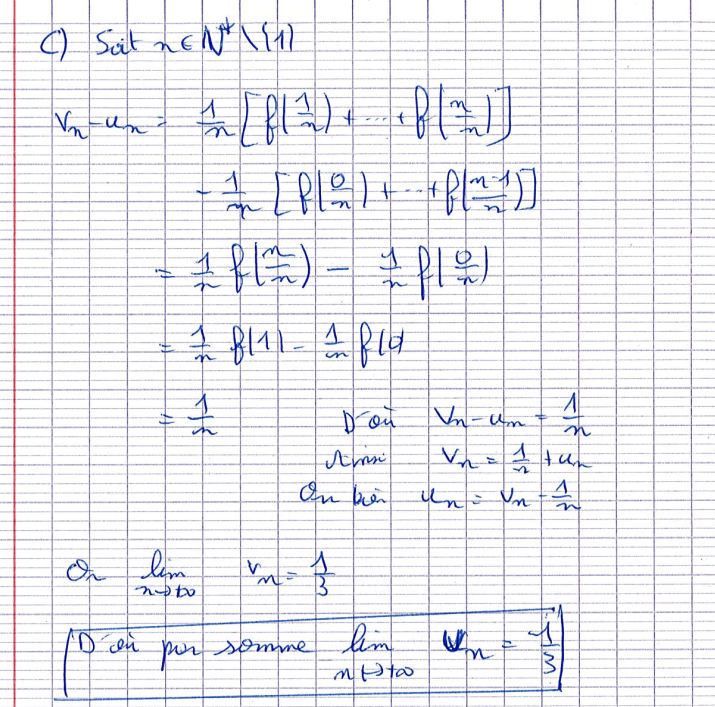 C) Soit n ∈ N* \ {1}
Vn - un = 1/n [f(1/n) + ... + f(n/n)]
- 1/n [f(0/n) + ... + f((n-1)/n)]
= 1/n f(n/n) - 1/n f(0/n)
= 1/n f(1) - 1/n f(0)
= 1/n D'où Vn - un = 1/n
Ainsi Vn = 1/n + un
Ou bien un = Vn - 1/n
Or lim n→+∞ Vn = 1/3
D'où par somme lim n↦+∞ Un = 1/3